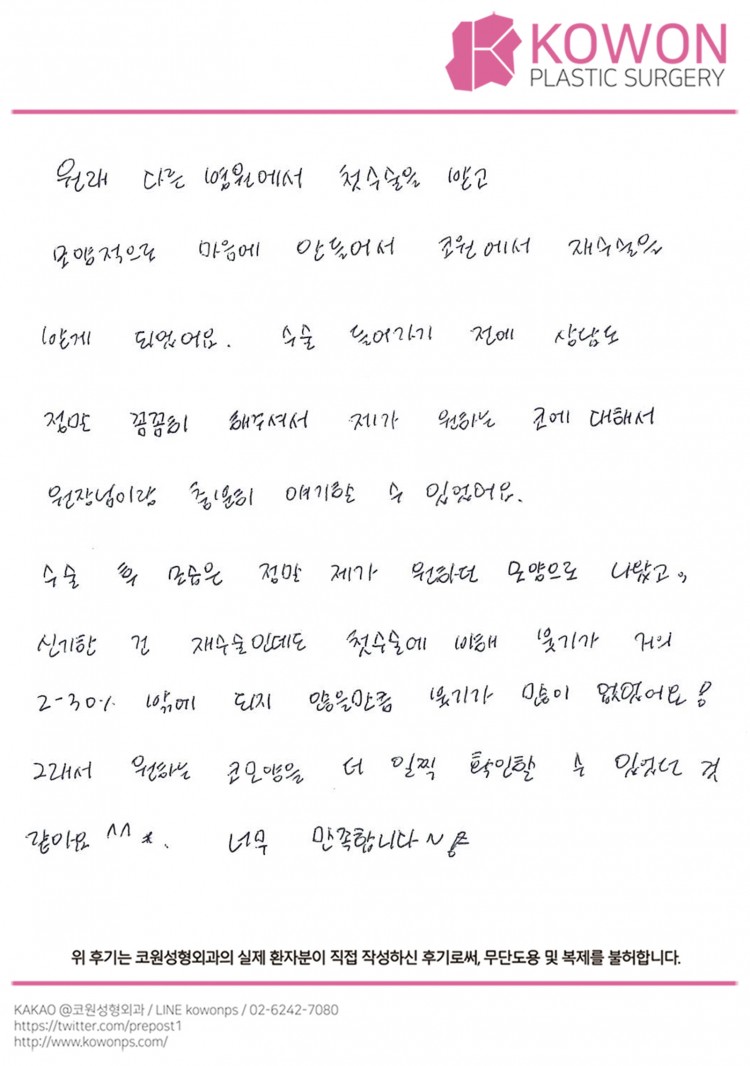 KOWON
PLASTIC SURGERY
원래 다른 병원에서 첫수술을 받고
모양적으로 마음에 안들어서 코원에서 재수술을
받게 되었어요. 수술 들어가기 전에 상담도
정말 꼼꼼히 해주셔서 제가 원하는 코에 대해서
원장님이랑 충분히 얘기할 수 있었어요.
수술 후 모습은 정말 제가 원하던 모양으로 나왔고,
신기한 건 재수술인데도 첫수술에 비해 붓기가 거의
2-30% 밖에 되지 않을만큼 붓기가 많이 없었어요!
그래서 원하는 코모양을 더 일찍 확인할 수 있었던 것
같아요 ^^ *. 너무 만족합니다~
위 후기는 코원성형외과의 실제 환자분이 직접 작성하신 후기로써, 무단도용 및 복제를 불허합니다.
KAKAO @코원성형외과 / LINE kowonps / 02-6242-7080
https://twitter.com/prepost1
http://www.kowonps.com/